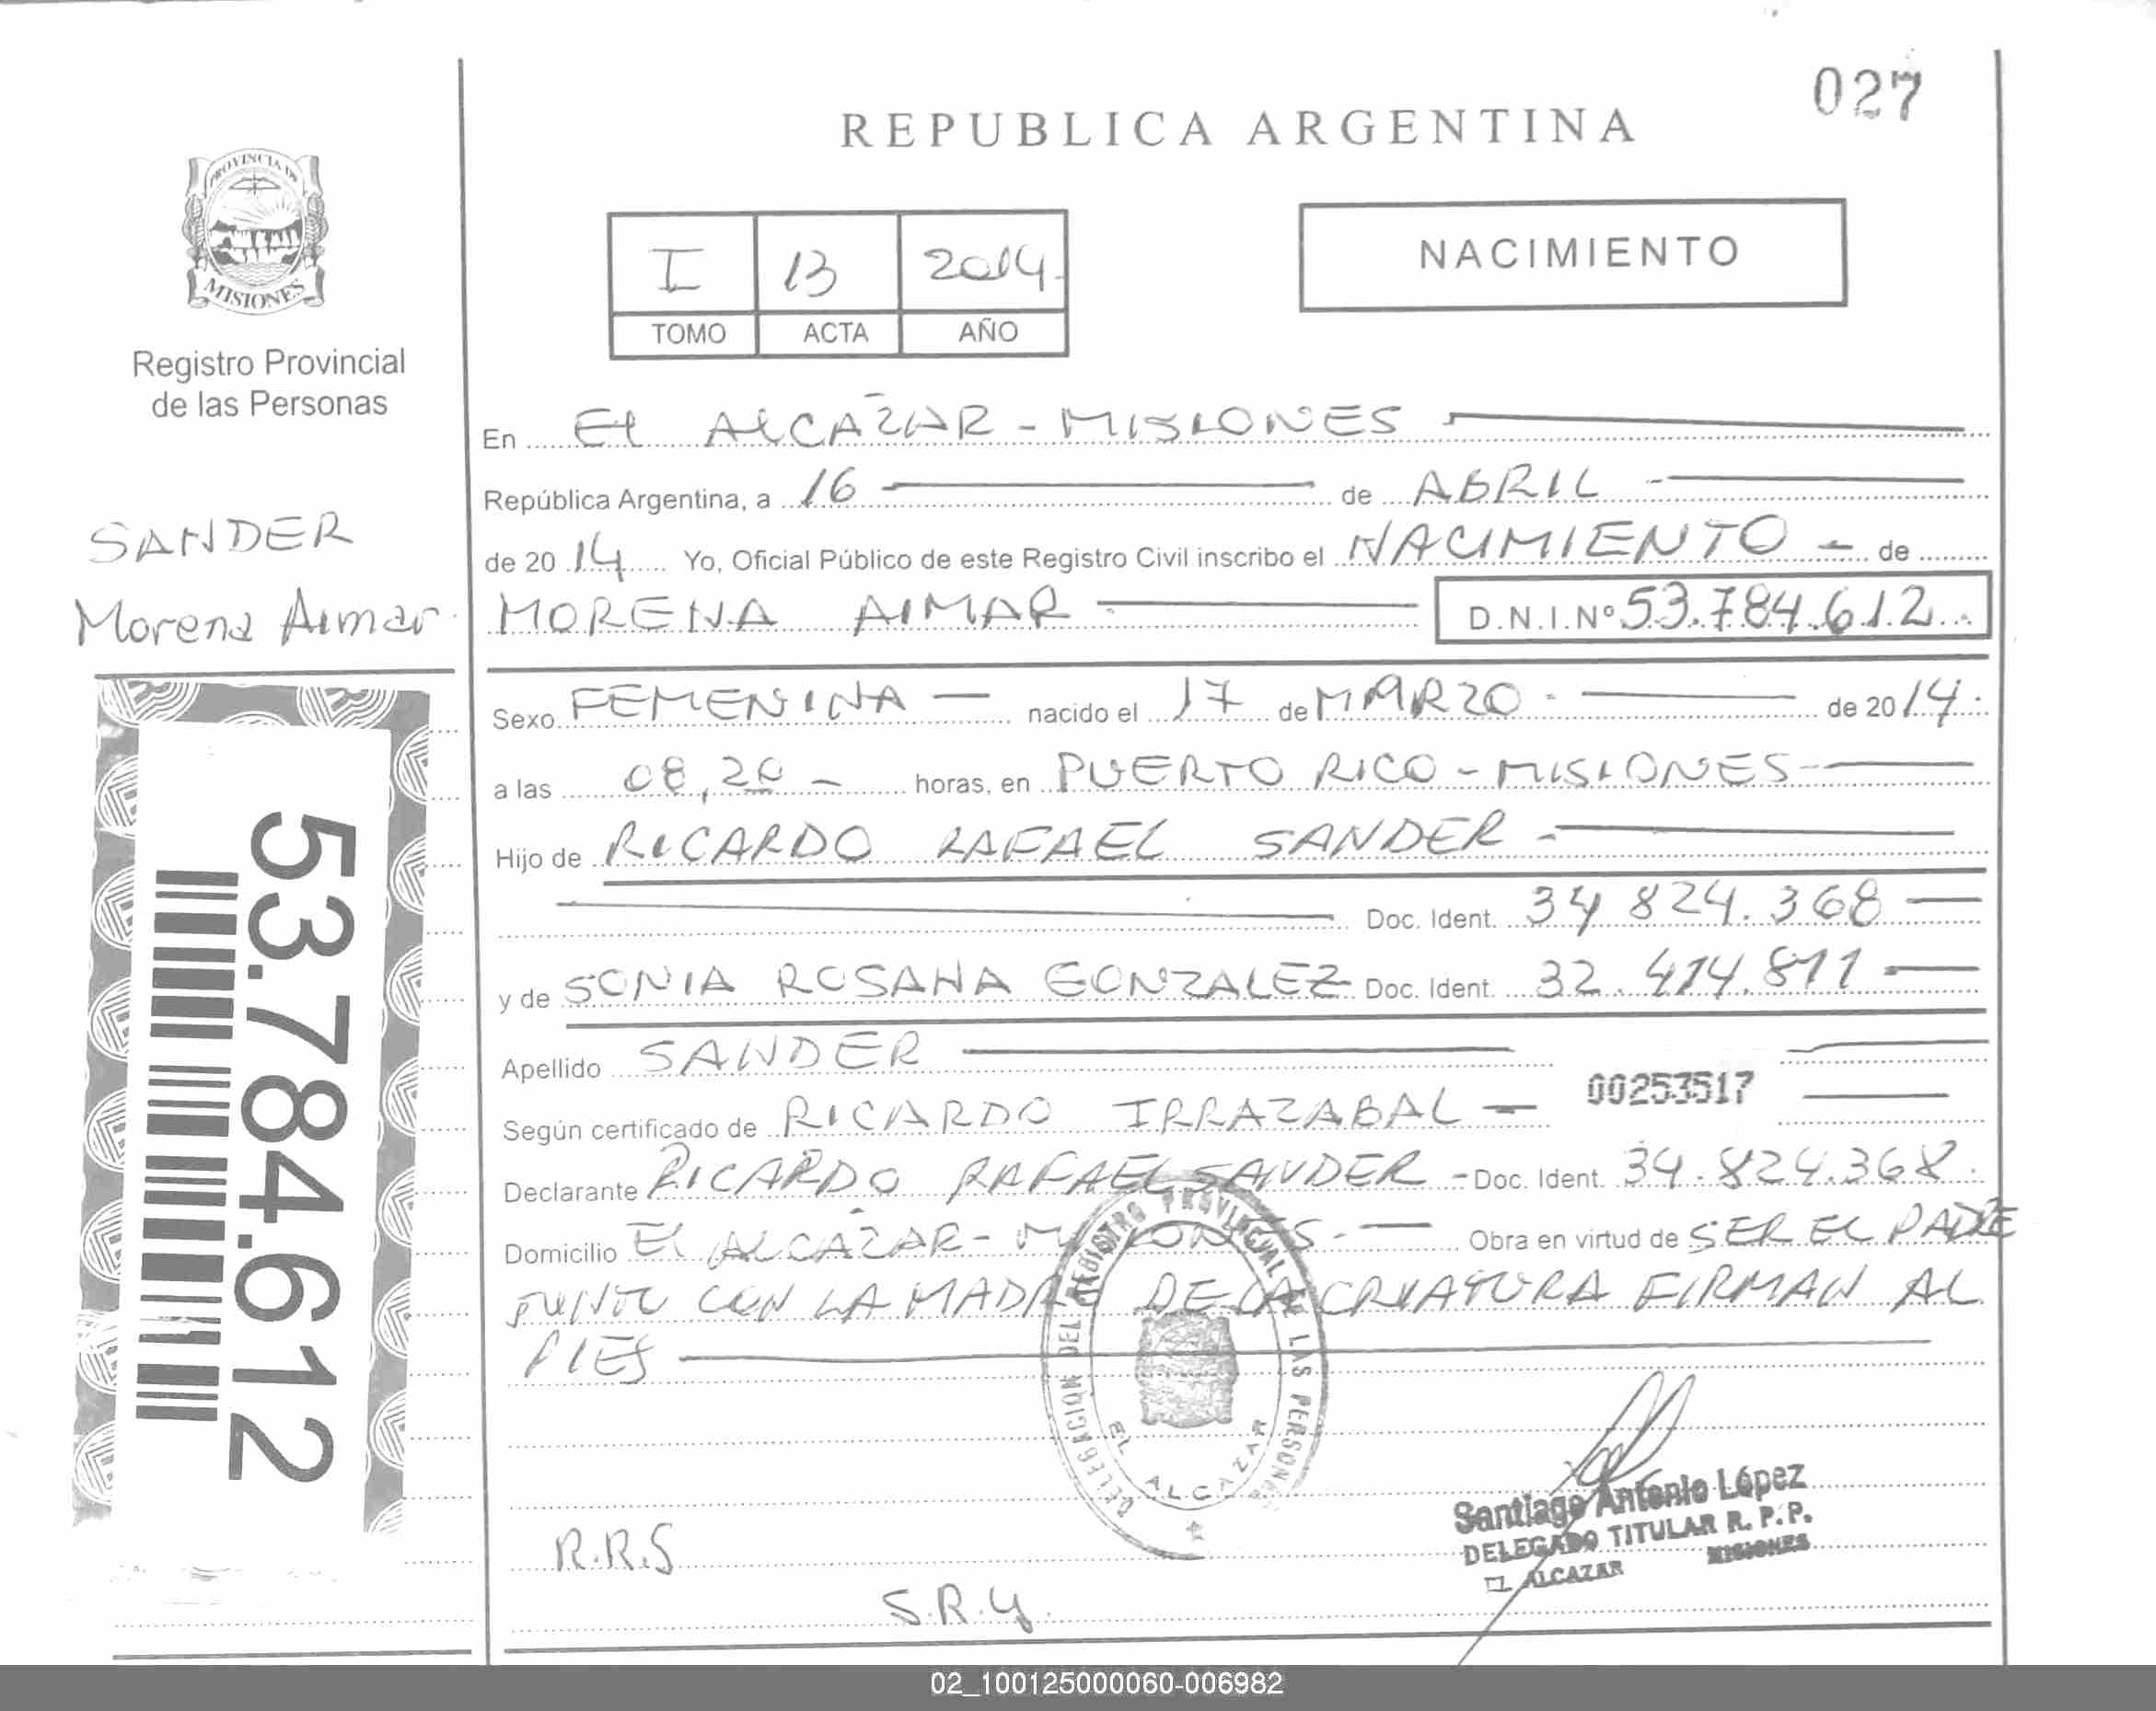 027
REPUBLICA ARGENTINA
PROVINCIA DE
MISIONES
Registro Provincial
de las Personas
I 13 2014
TOMO ACTA AÑO
NACIMIENTO
SANDER
Morena Aimar
53.784.612
En El ALCAZAR - MISIONES
República Argentina, a 16 de ABRIL
de 2014 Yo, Oficial Público de este Registro Civil inscribo el NACIMIENTO - de
MORENA AIMAR D.N.I.Nº 53.784.612
Sexo FEMENINA - nacido el 17 de MARZO - de 2014
a las 08,20 - horas, en PUERTO RICO - MISIONES
Hijo de RICARDO RAFAEL SANDER -
Doc. Ident. 34 824.368
y de SONIA ROSANA GONZALEZ Doc. Ident. 32.414.811
Apellido SANDER
00253517
Según certificado de RICARDO IRRAZABAL -
Declarante RICARDO RAFAEL SANDER - Doc. Ident. 34.824.368
Domicilio El ALCAZAR - MISIONES - Obra en virtud de SER EL PADRE
JUNTO CON LA MADRE DE LA CRIATURA FIRMAN AL
PIES
DELEGACION DEL REGISTRO PROVINCIAL DE LAS PERSONAS
EL ALCAZAR
Santiago Antonio López
DELEGADO TITULAR R. P. P.
EL ALCAZAR MISIONES
R.R.S
S.R.G
02_100125000060-006982